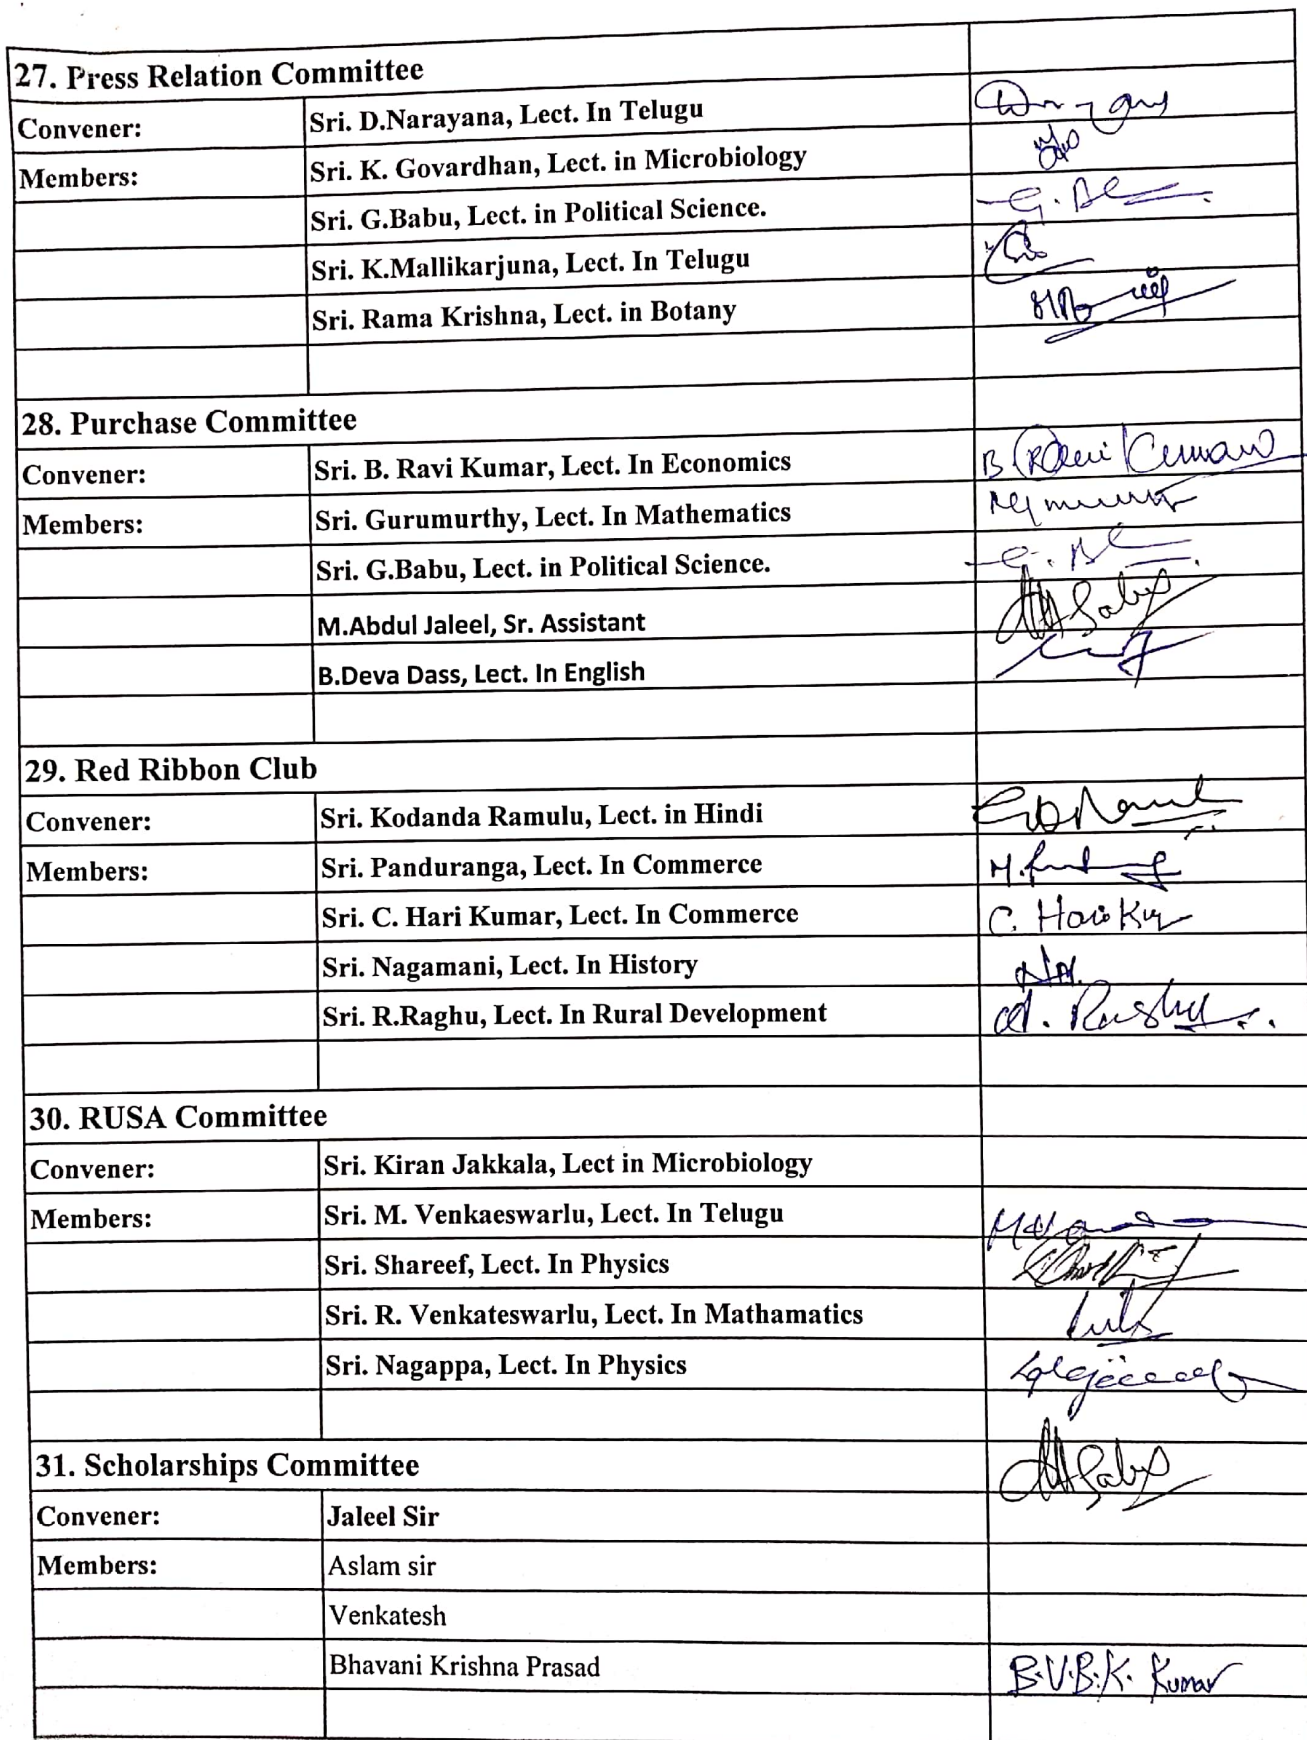 27. Press Relation Committee
Convener: Sri. D.Narayana, Lect. In Telugu
Members: Sri. K. Govardhan, Lect. in Microbiology
Sri. G.Babu, Lect. in Political Science.
Sri. K.Mallikarjuna, Lect. In Telugu
Sri. Rama Krishna, Lect. in Botany
28. Purchase Committee
Convener: Sri. B. Ravi Kumar, Lect. In Economics B Ravi Kumar
Members: Sri. Gurumurthy, Lect. In Mathematics
Sri. G.Babu, Lect. in Political Science.
M.Abdul Jaleel, Sr. Assistant
B.Deva Dass, Lect. In English
29. Red Ribbon Club
Convener: Sri. Kodanda Ramulu, Lect. in Hindi
Members: Sri. Panduranga, Lect. In Commerce
Sri. C. Hari Kumar, Lect. In Commerce
Sri. Nagamani, Lect. In History
Sri. R.Raghu, Lect. In Rural Development
30. RUSA Committee
Convener: Sri. Kiran Jakkala, Lect in Microbiology
Members: Sri. M. Venkaeswarlu, Lect. In Telugu
Sri. Shareef, Lect. In Physics
Sri. R. Venkateswarlu, Lect. In Mathamatics
Sri. Nagappa, Lect. In Physics
31. Scholarships Committee
Convener: Jaleel Sir
Members: Aslam sir
Venkatesh
Bhavani Krishna Prasad B.V.B.K. Kumar